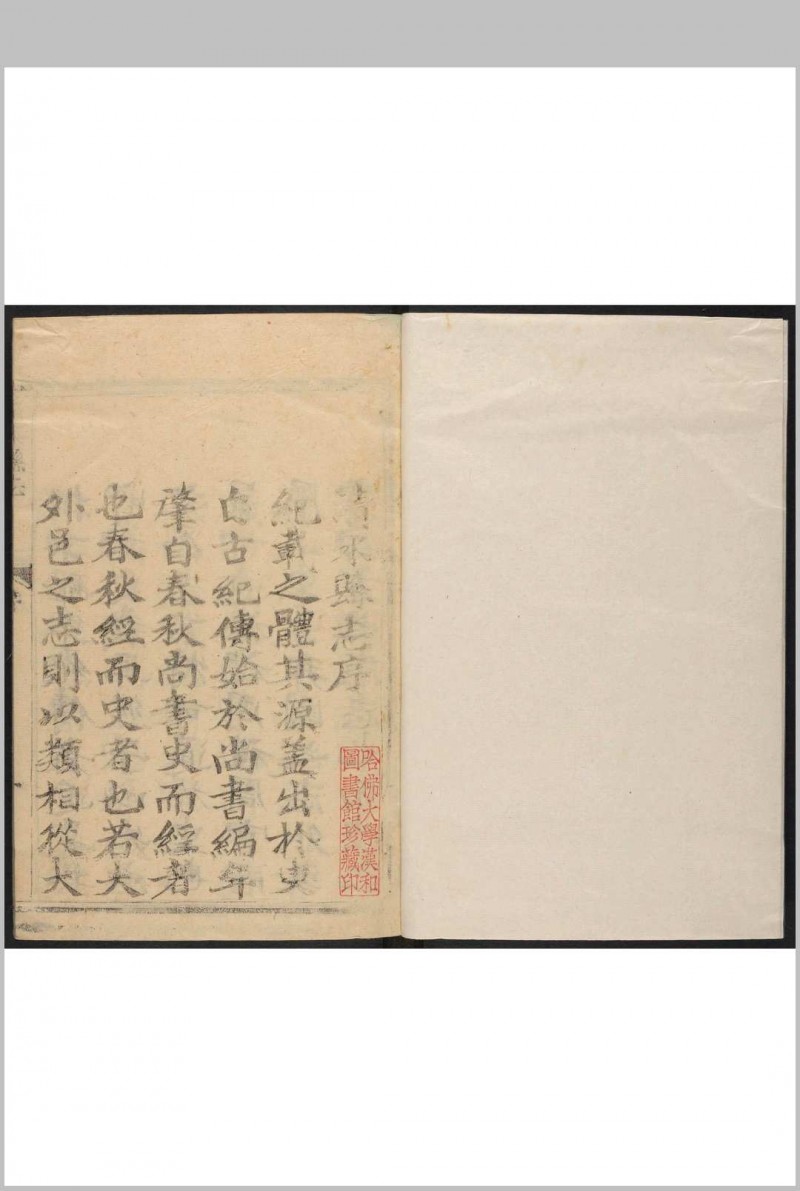 水縣志序
哈佛大學漢和
圖書館珍藏印
紀載之體其源蓋出於史
自古紀傳始於尚書編年
肇自春秋尚書史而經者
也春秋經而史者也若大
外邑之志則以類相從大